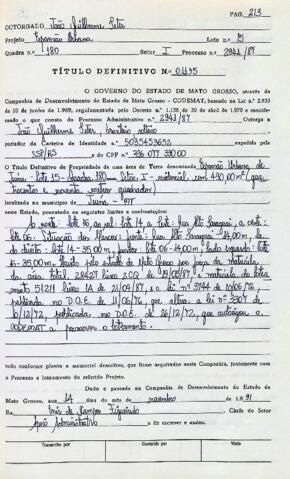 PAG. 213
OUTORGADO João Guilherme Peter
Projeto Expansão Urbana Lote n.º 15
Quadra n.º 180 Setor I Processo n.º 2941/87
TÍTULO DEFINITIVO N.º 01435
O GOVERNO DO ESTADO DE MATO GROSSO, através da
Companhia de Desenvolvimento do Estado de Mato Grosso - CODEMAT, baseado na Lei n.º 2.933
de 10 de junho de 1969, regulamentada pelo Decreto n.º 1.138 de 30 de abril de 1970 e considerando
o que consta do Processo Administrativo n.º 2941/87 Outorga a
João Guilherme Peter, brasileiro, solteiro
portador da Carteira de Identidade n.º 5035453652 expedida pela
SSP/RS e do CPF n.º
O Título Definitivo de Propriedade de uma área de Terra denominada Expansão Urbana de
Juína - lote 15 - Quadra 180 Setor I - residencial, com 490,00 m² (quatro
centos e noventa metros quadrados)
localizada no município de Juína - MT
neste Estado, possuindo os seguintes limites e confrontações:
ao norte: lote 16, ao sul: lote 14, a leste: rua Alto Paraguai, a oeste:
lote 06 - Situação dos Marcos: frente: rua Alto Paraguai - 14,00 m, la
do direito: lote - 35,00 m, fundos: lote 06 - 14,00 m, lado esquerdo: lote
- 35,00 m. Havido pelo Estado de Mato Grosso por força da matrícula
da área total: 28427 livro 2CQ de /05/87 e a matrícula do loteamento
51211 livro 1A de 21/09/87, e a lei nº 3744 de 10/06/76,
publicada no D.O.E. de 11/06/76 que altera a lei nº 3307 de
/12/72, publicada no D.O.E. de 26/12/72, que autorizou a
CODEMAT a promover o loteamento.
tudo conforme planta e memorial descritivo, que ficam arquivados nesta Companhia, juntamente com
o Processo e loteamento do referido Projeto.
Dado e passado na Companhia de Desenvolvimento do Estado de
Mato Grosso, aos 14 dias do mês de novembro de 1991
Eu Inês de Campos Figueiredo Chefe do Setor
Apoio Administrativo o fiz escrever e assino.
Transcrito por Conferido por Visto